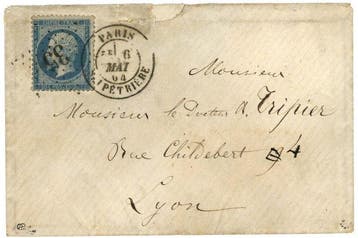 PARIS
6
MAI
64
LPÊTRIÈRE
Monsieur
Monsieur le Docteur A. Tripier
Rue Childebert 4
Lyon